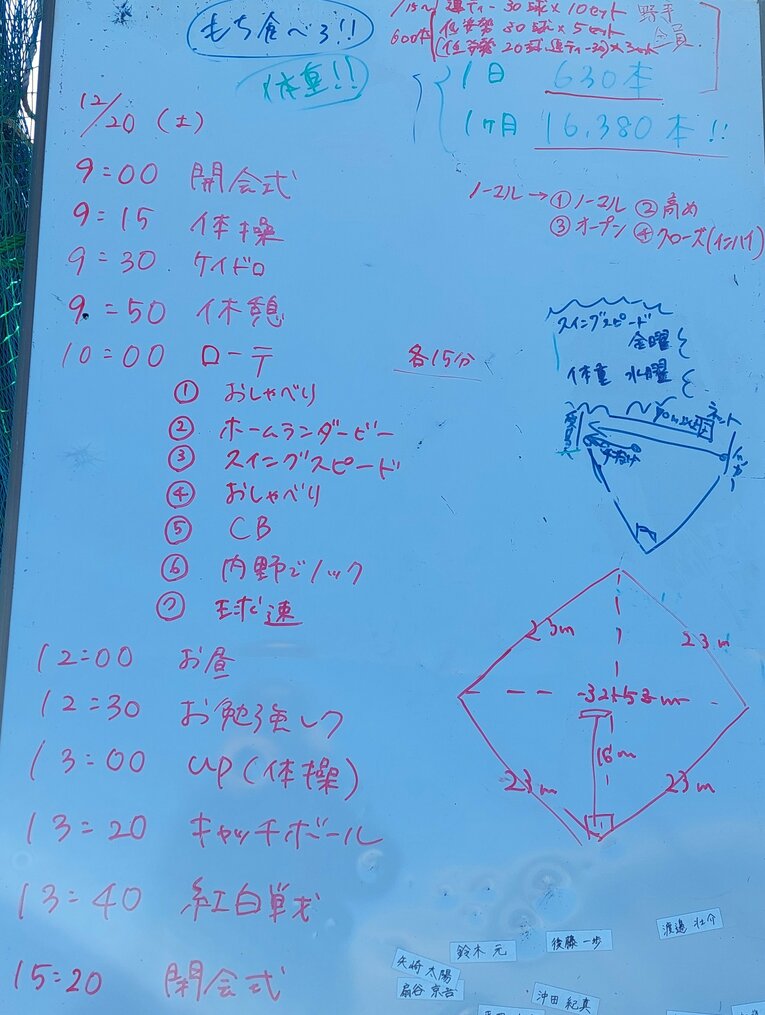 もち食べろ!!
体重!!
連ティー 30球×10セット 野手
600本 低姿勢 30球×5セット 全員
(低姿勢 20球、連ティー30)×3セット
1日 630本
1ヶ月 16,380本!!
12/20 (土)
9:00 開会式
9:15 体操
9:30 ケイドロ
9:50 休憩
10:00 ローテ 各15分
① おしゃべり
② ホームランダービー
③ スイングスピード
④ おしゃべり
⑤ CB
⑥ 内野でノック
⑦ 球速
12:00 お昼
12:30 お勉強しつ
13:00 up(体操)
13:20 キャッチボール
13:40 紅白戦
15:20 閉会式
ノーマル→①ノーマル ②高め
③オープン ④クローズ(インハイ)
スイングスピード
金曜
体重 水曜
ネット
23m
23m
16m
23m
23m
渡邉 壮介
後藤 一歩
鈴木 元
矢崎 太陽
扇谷 京吾
沖田 紀真